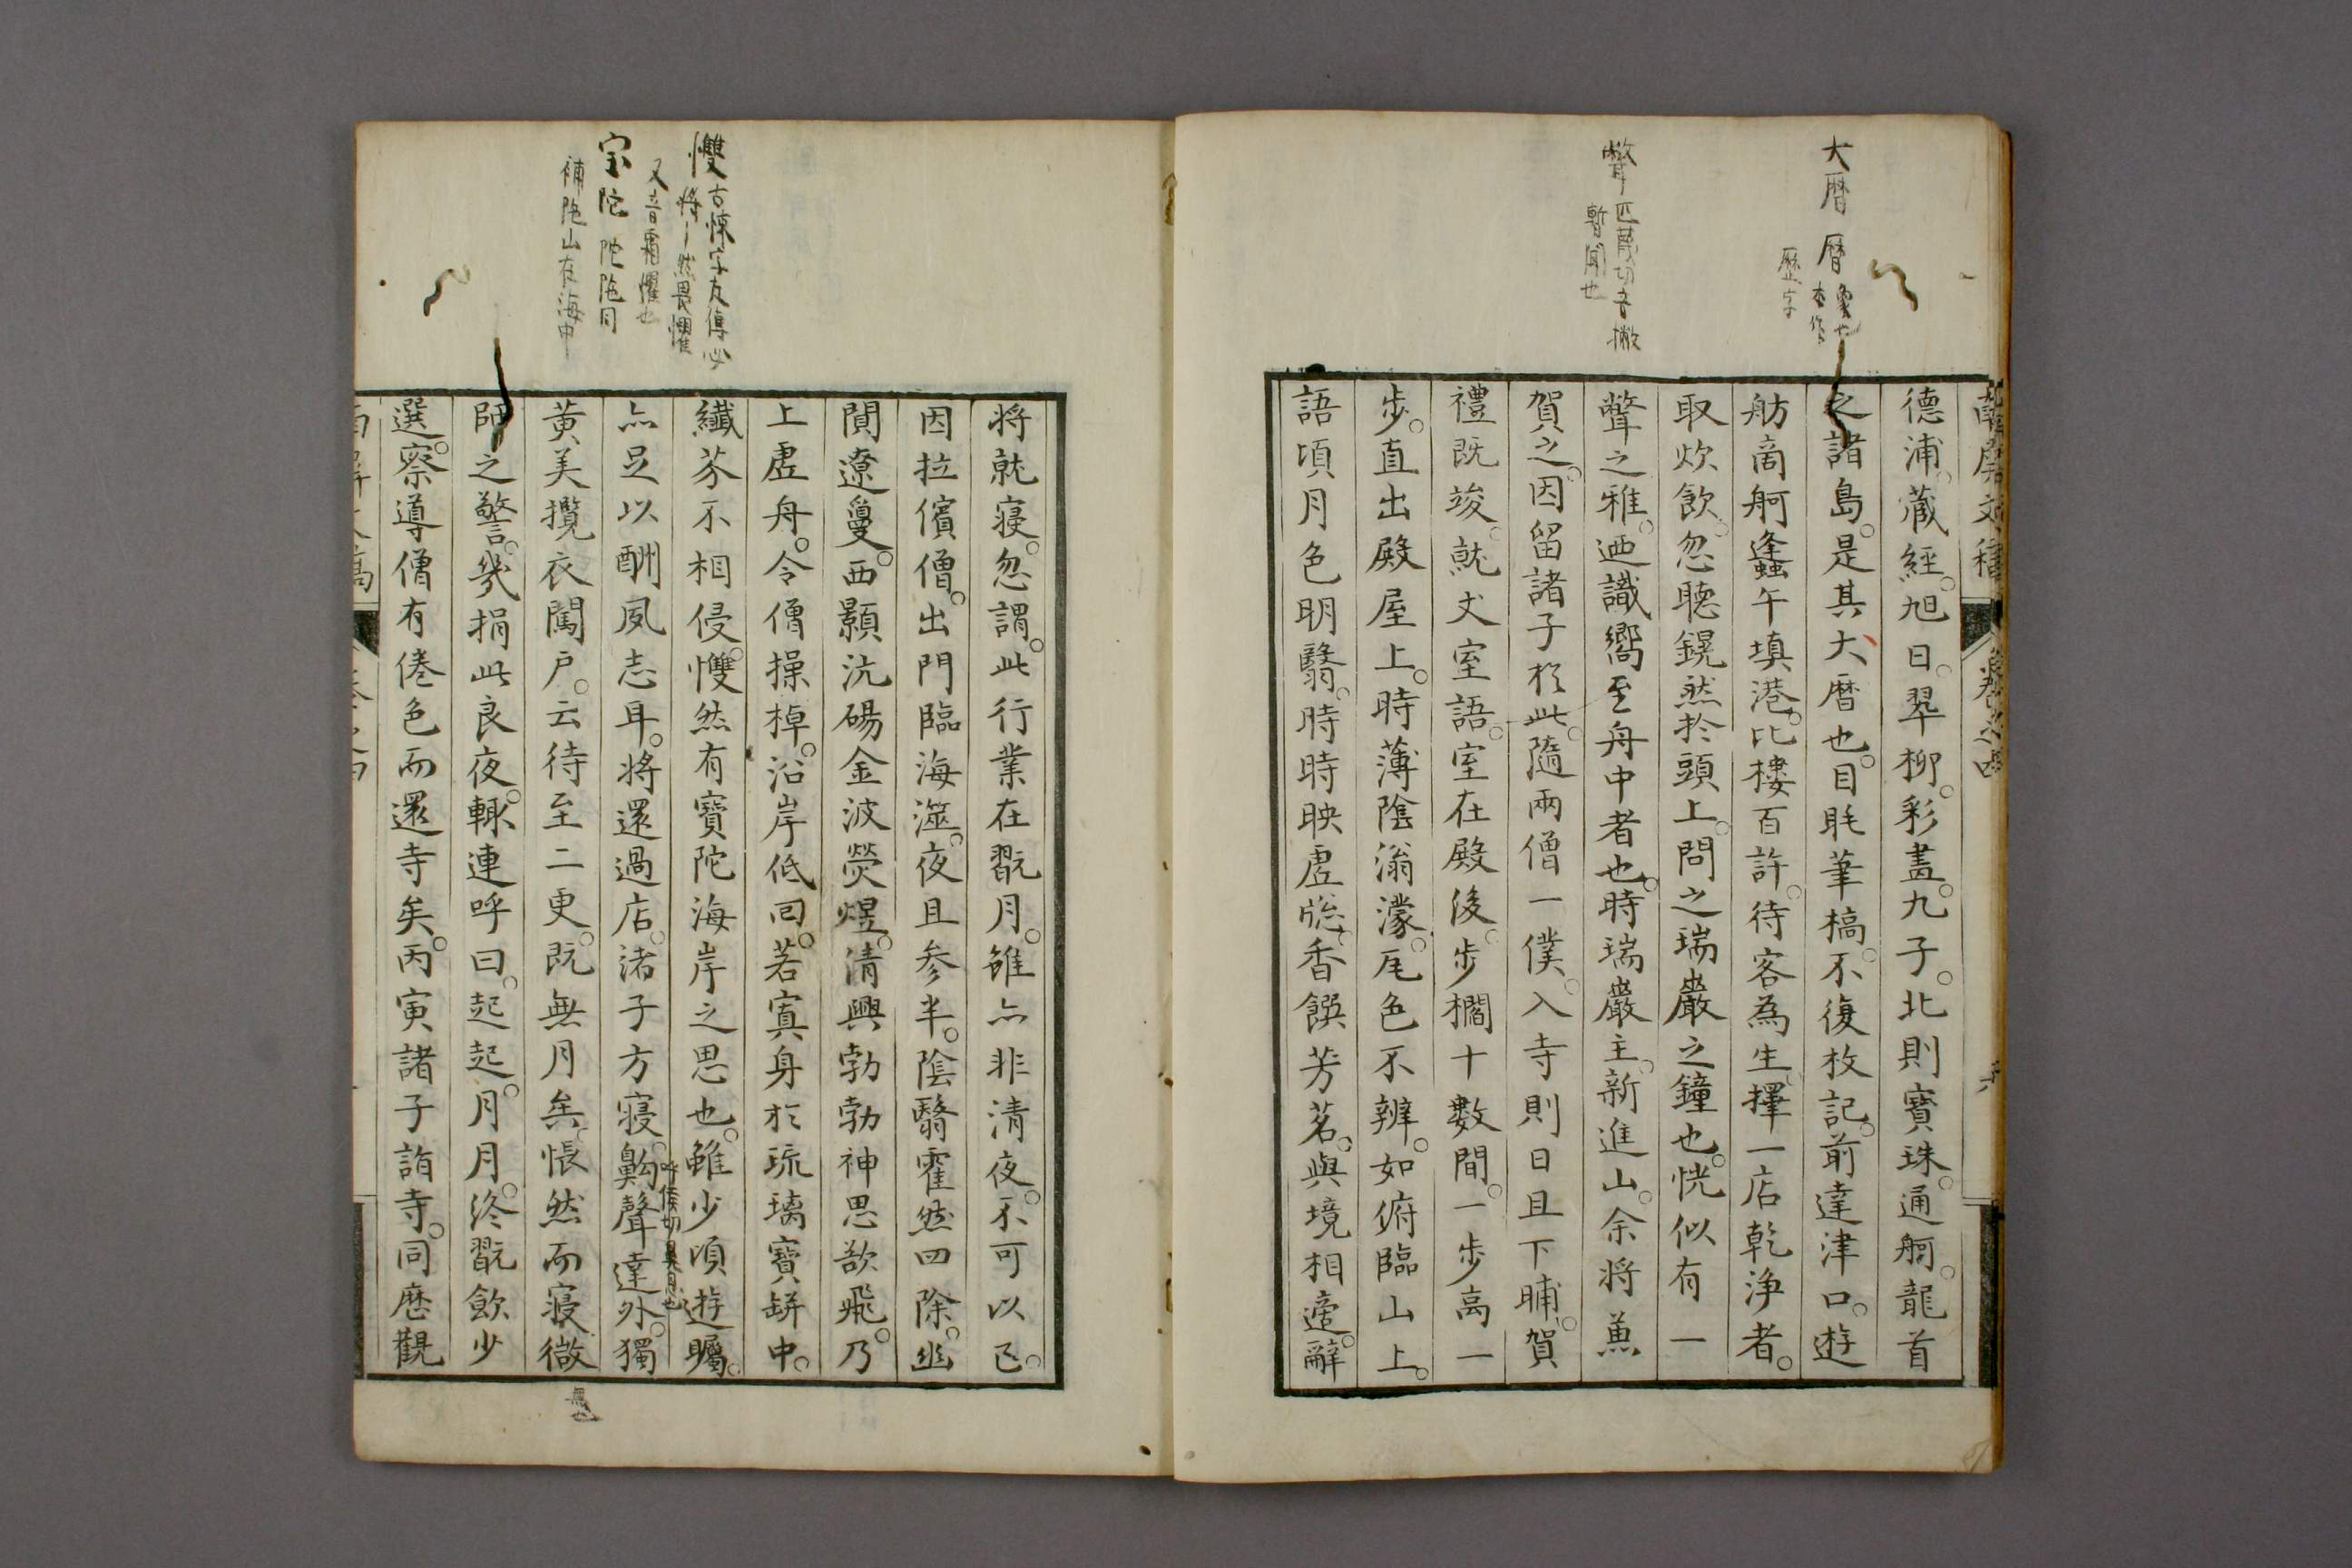 大暦 暦 象也 本作
歴字
瞥 匹蔑切音撇
暫聞也
德浦。藏經。旭日。翠柳。彩畫。九子。北則寳珠。通舸。龍首
之諸島。是其大暦也。目眊筆槁。不復枚記。前達津口。遊
舫商舸蜂午填港。比樓百許。待客為生。擇一店乾淨者。
取炊飲。忽聽鎤然於頭上。問之瑞巖之鐘也。恍似有一
瞥之雅。廼識嚮至舟中者也。時瑞巖主。新進山。余将兼
賀之。因留諸子於此。隨兩僧一僕。入寺則日且下晡。賀
禮既竣。就丈室語。室在殿後。步櫩十數間。一步高一
步。直出殿屋上。時薄陰滃濛。瓦色不辨。如俯臨山上。
語頃月色明翳。時時映虚牕。香饌芳茗。與境相適。辭
慢 古悚字左傳必
将〻然畏懼
又音霜懼也
宝陀 陀陁同
補陁山在海中
将就寝。忽謂。此行業在翫月。雖亦非清夜。不可以已。
因拉儐僧。出門臨海澨。夜且参半。陰翳霍然四除。幽
閴遼敻。西顥沆碭金波熒煜。清興勃勃神思欲飛。乃
上虚舟。令僧操棹。沿岸低回。若寘身於琉璃寳缾中。
纖芥不相侵。愯然有寳陀海岸之思也。雖少頃遊矚。
亦足以酬夙志耳。将還過店。諸子方寝。鼽聲達外。獨
黄美攬衣闖户。云待至二更。既無月矣。悵然而寝微
師之警。幾捐此良夜。輙連呼曰。起起。月月。終翫飲少
選。察導僧有倦色而還寺矣。丙寅諸子詣寺。同歷觀